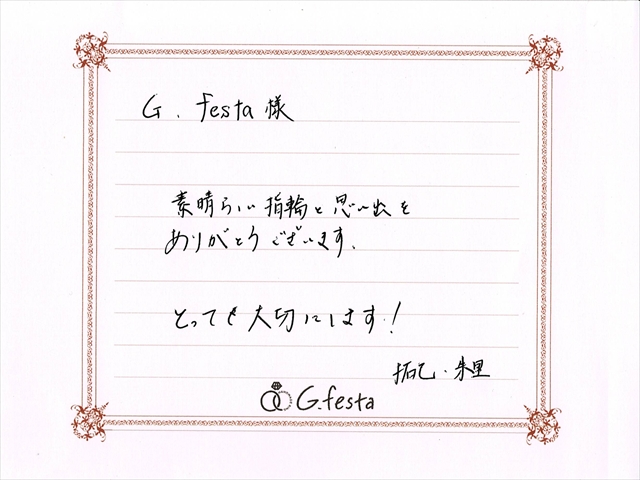 G. festa 様
素晴らしい指輪と思い出を
ありがとうございます。
とっても大切にします!
拓己・朱里
G.festa